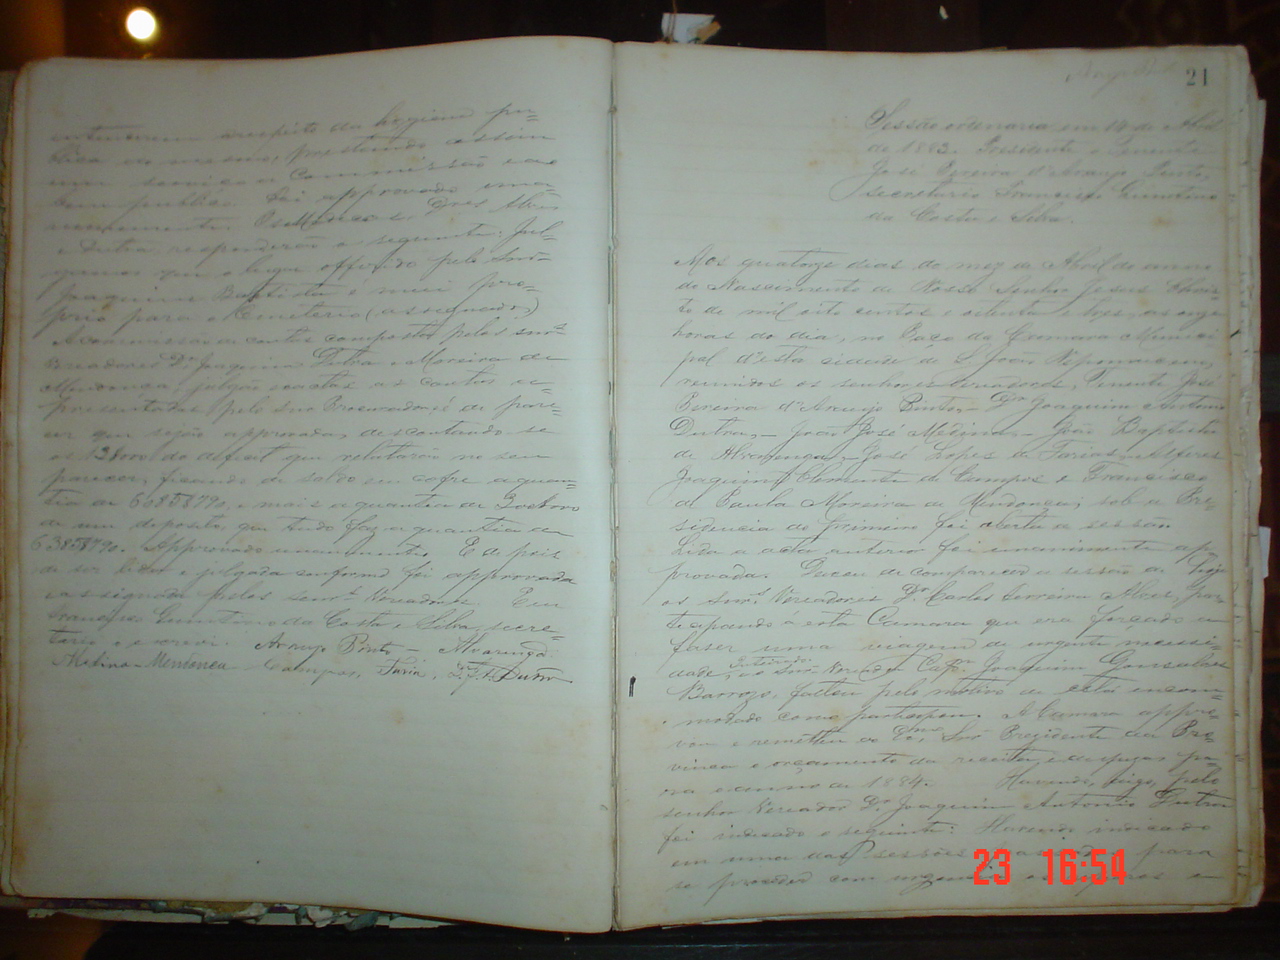 entenderem a respeito da hygiene pu-
blica da mesma, prestando assim
um serviço a Commissão e ao
bem publico. Foi approvado una-
nimemente. Os Dres Alves
e Dutra, responderão o seguinte: Jul-
gamos que o lugar offerecido pelo Snr
Joaquim Baptista é mui pro-
prio para o Cemeterio (assignados)
A commissão de contas composta pelos snrs
Vereadores Dr Joaquim Dutra e Moreira de
Mendonça, julgão exactas as contas a-
presentadas pelo Snr Procurador e é de pare-
cer que sejão approvadas, descontando se
os do deficit que relatarão no seu
parecer, ficando de saldo em cofre a quan-
tia de 608$8790, e mais a quantia de
de um deposito, que tudo faz a quantia de
638$8790. Approvado unanimemente. E depois
de ser lida e julgada conforme foi approvada
e assignada pelos senrs Vereadores. Eu
Francisco Quintino da Costa e Silva, secre-
tario, e escrevi. Araujo Pinto - Alvarenga
Medina - Mendonça Campos, Faria, Dutra
21
Sessão ordenaria em 14 de Abril
de 1883. Presidente o Tenente
José Pereira d'Araujo Pinto,
secretario Francisco Quintino
da Costa e Silva.
Aos quatorze dias do mez de Abril do anno
do Nascimento de Nosso Senhor Jesus Chris-
to de mil oito centos e oitenta e tres, as onze
horas do dia, no Paço da Camara Munici
pal d'esta cidade de S. João Nepomuceno,
reunidos os senhores vereadores, Tenente José
Pereira d'Araujo Pinto, - Dr Joaquim Antonio
Dutra, - João José Medina, - João Baptista
de Alvarenga, José Lopes de Faria, Alferes
Joaquim Clemente de Campos e Francisco
de Paula Moreira de Mendonça, sob a Pre-
sidencia do primeiro foi aberta a sessão.
Lida a acta anterior foi unanimente ap-
provada. Deixou de comparecer a sessão de hoje
os snrs Vereadores Dr Carlos Ferreira Alves, par-
tecipando a esta Camara que era forçado a
faser uma viagem de urgente necessi-
dade, Inteirada. o Snr Vereador Capm Joaquim Gonsalves
Barrozo, faltou pelo motivo de estar encom-
modado como participou. A Camara appro-
vou e remetteu ao Exmo Snr Presidente da Pro-
vincia o orçamento da receita e despezas pa-
ra o anno de 1884. Havendo, pelo
senhor Vereador Dr Joaquim Antonio Dutra
foi indicado o seguinte: Havendo indicado
em uma das sessões para
se proceder com urgencia
23 16:54